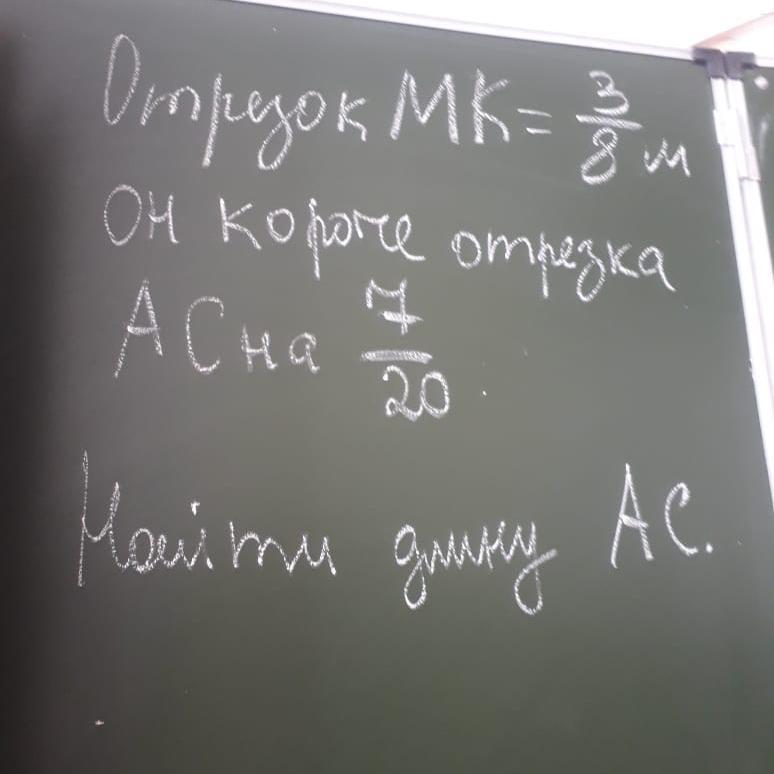 Отрезок МК = 3/8 м
Он короче отрезка
АС на 7/20
Найти длину АС.